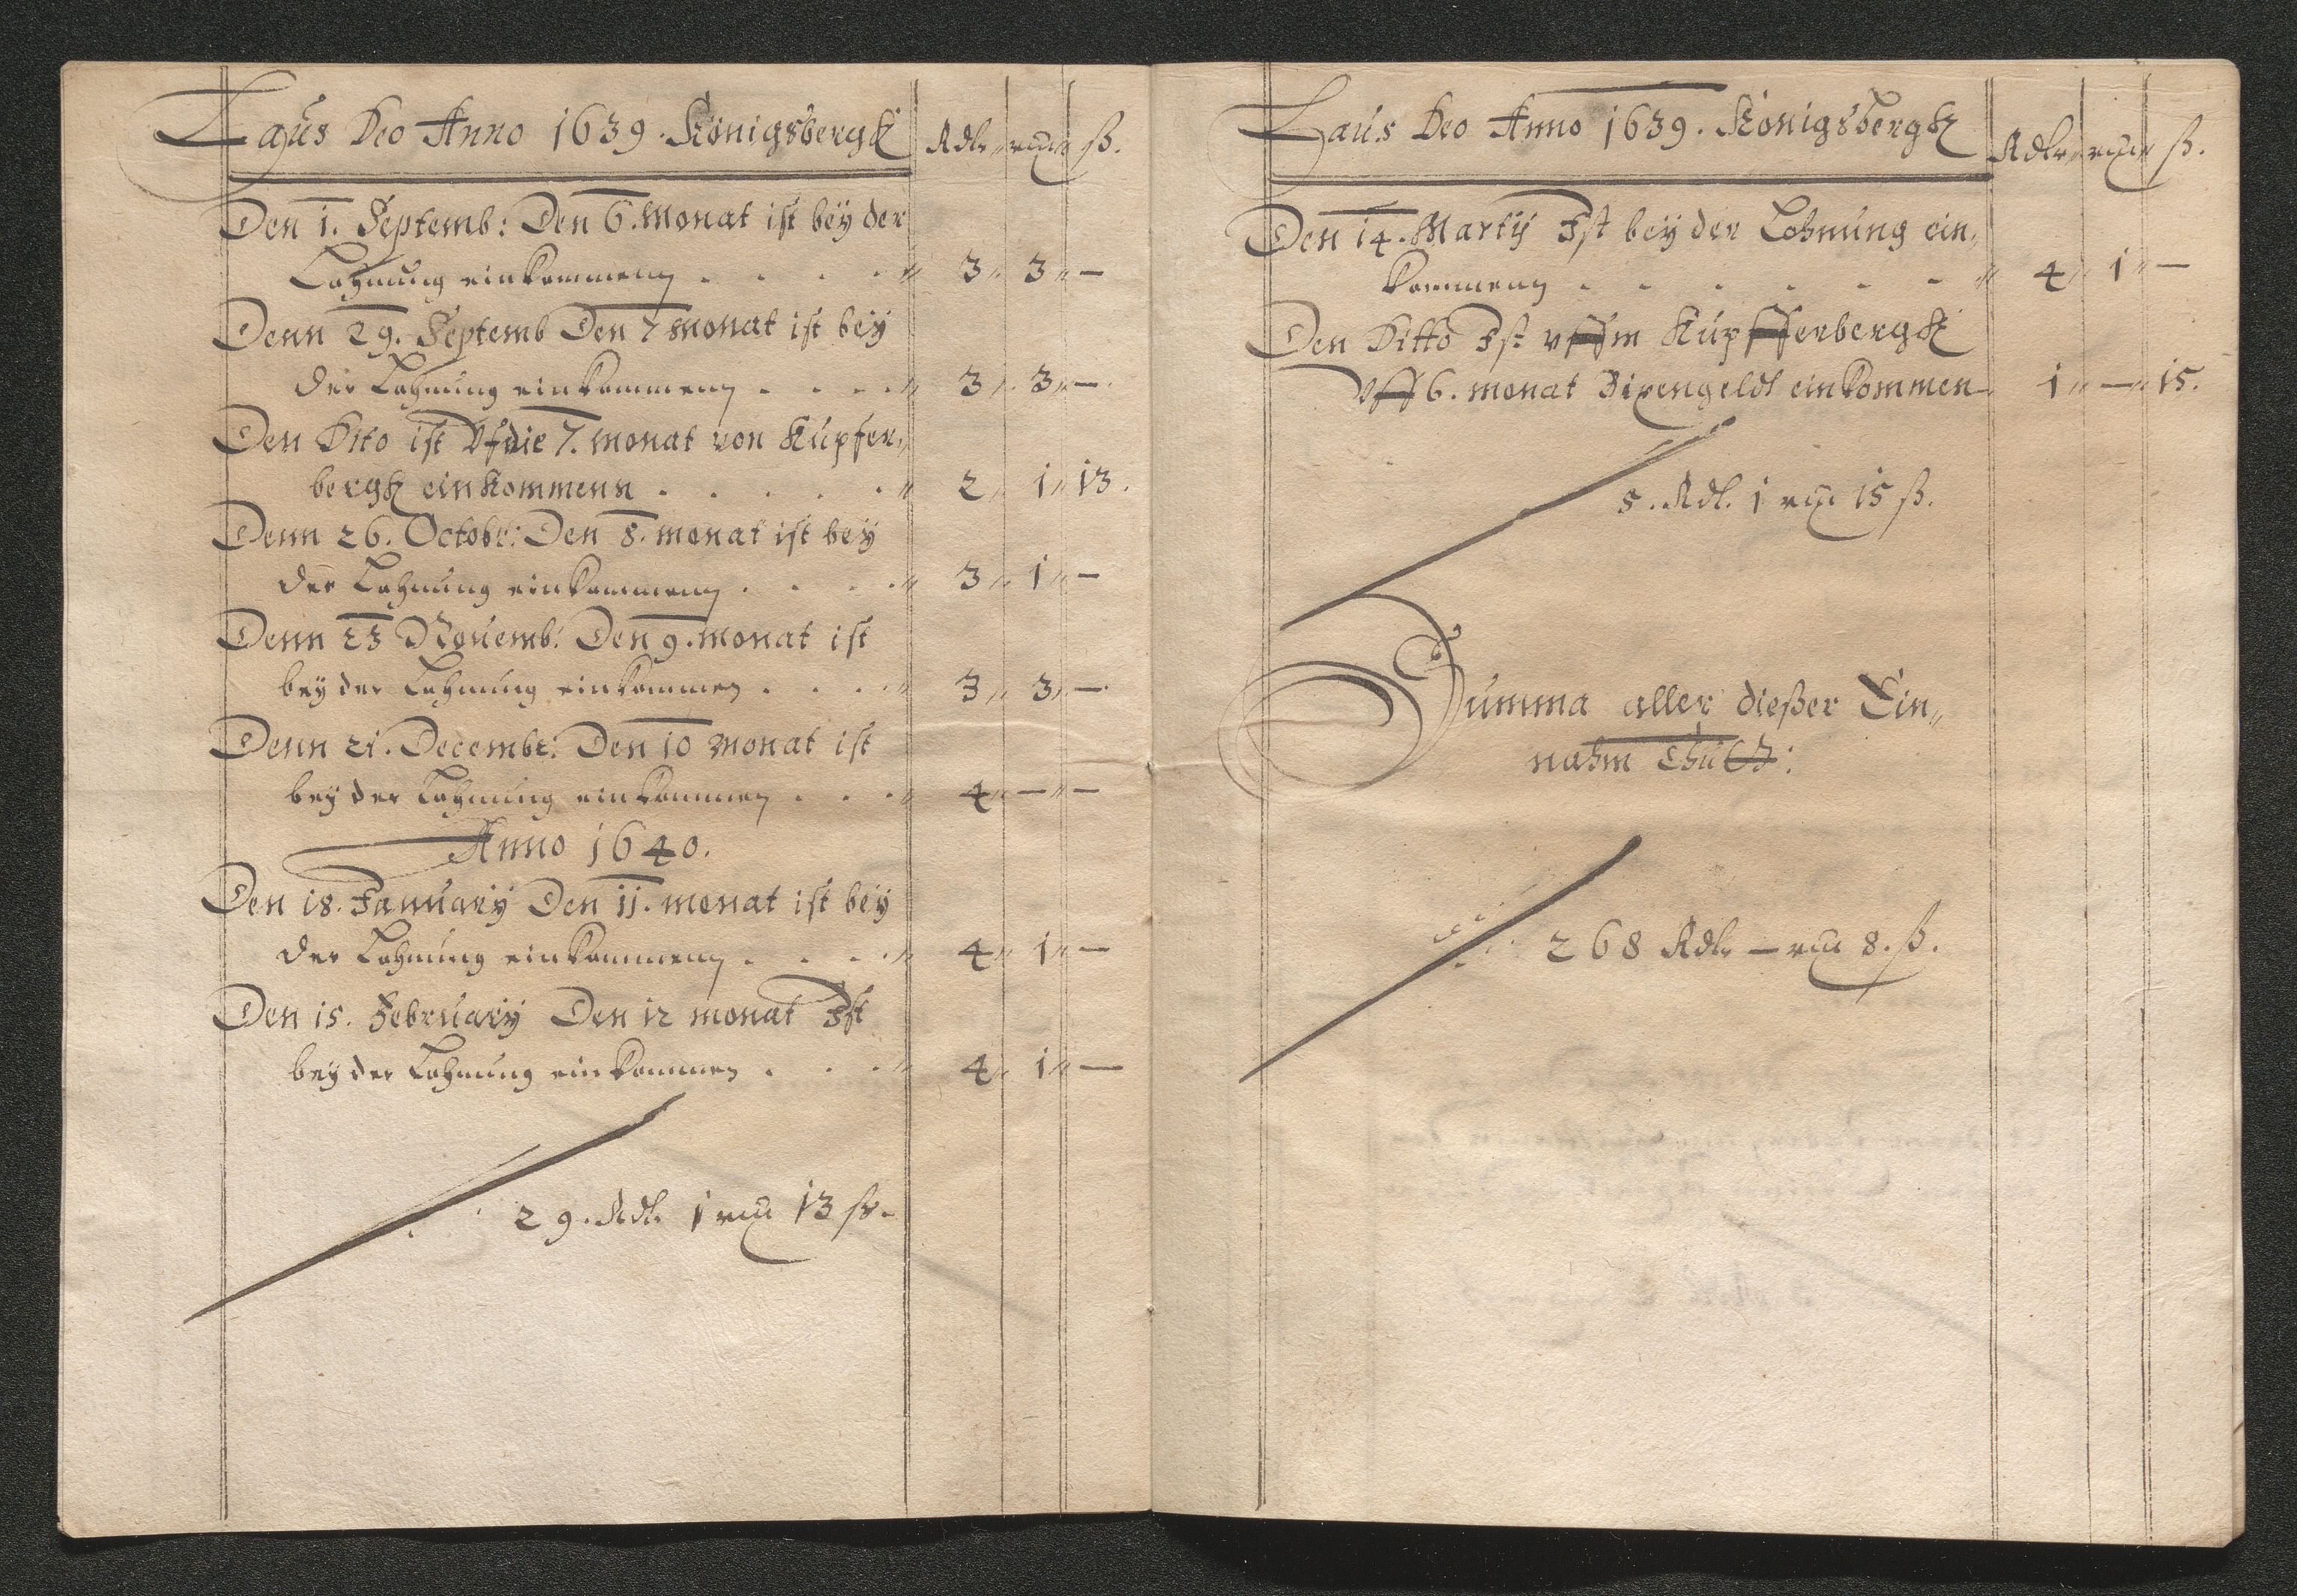 Laus Deo Anno 1639. Königsbergk Rdlr ß.
Den 1. Septemb: Den 6. Monat ist beÿ der
Lohnung einkommenn . . . . 3 3 —
Denn 29. Septemb Den 7 monat ist beÿ
der Lohnung einkommenn . . . . 3 3 —
Den Dito ist Vf die 7. monat von Kupfer„
bergk einkommenn . . . . . 2 1 13.
Denn 26. Octobr: Den 8. monat ist beÿ
der Lohnung einkommenn . . . . 3 1 —
Denn 23 Nouemb: Den 9. monat ist
beÿ der Lohnung einkommen . . . . 3 3 —
Denn 21. Decembr: Den 10 monat ist
beÿ der Lohnung einkommen . . . 4 — —
Anno 1640.
Den 18. Januarÿ Den 11. monat ist beÿ
der Lohnung einkommenn . . . . 4 1 —
Den 15. Februarÿ Den 12 monat Ist
beÿ der Lohnung einkommen . . . 4 1 —
29. Rdl. 1 13 ß.
Laus Deo Anno 1639. Königsbergk Rdlr ß.
Den 14. Martÿ Ist beÿ der Lohnung ein„
kommenn . . . . . . 4 1 —
Den Ditto Ist vffm Kupfferbergk
Vff 6. monat Bixengeldt einkommen 1 — 15.
5. Rdl. 1 15 ß.
Summa aller dießer Ein„
nahm Thutt:
268 Rdlr — 8. ß.